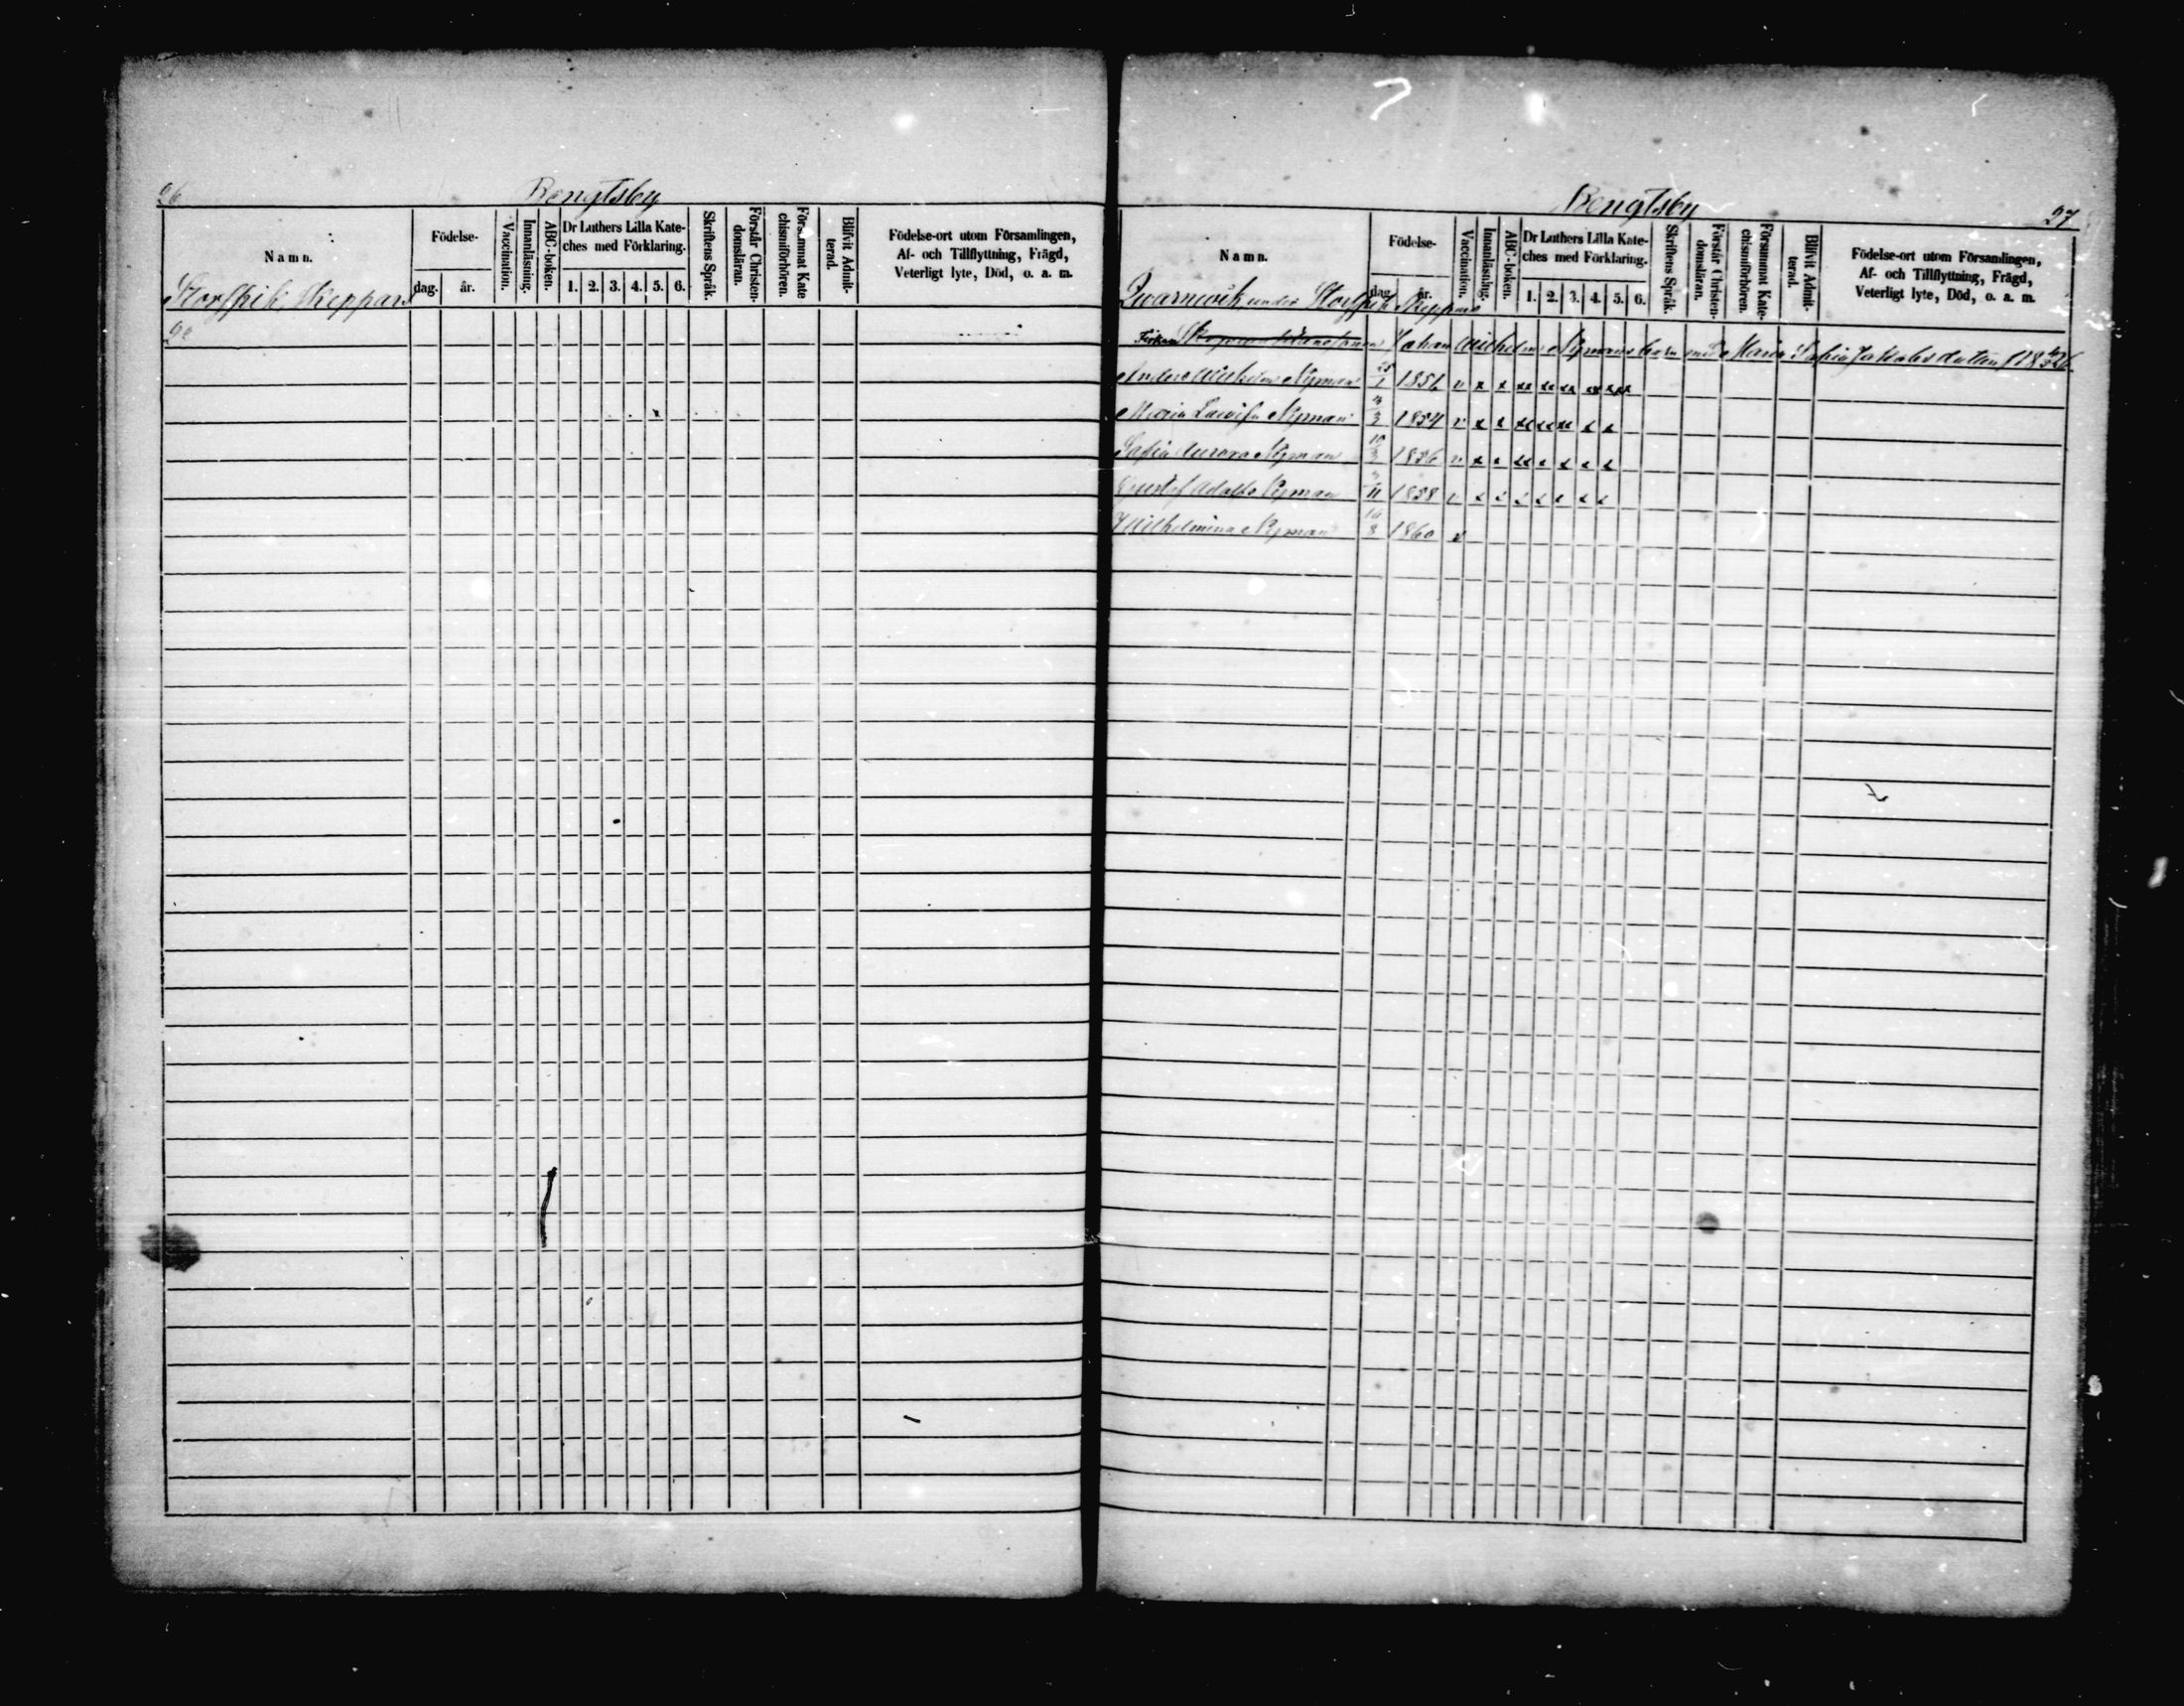 26
Bengtsby
Namn.
Födelse-
dag. år.
Vaccination.
Innanläsning.
ABC-boken.
Dr Luthers Lilla Kate-
ches med Förklaring.
1. 2. 3. 4. 5. 6.
Skriftens Språk.
Förstår Christen-
domsläran.
Försummat Kate
chismiförhören.
Blifvit Admit-
terad.
Födelse-ort utom Församlingen,
Af- och Tillflyttning, Frägd,
Veterligt lyte, Död, o. a. m.
Storspik, Skeppars
Bengtsby
27
Namn.
Födelse-
dag. år.
Vaccination.
Innanläsning.
ABC-boken.
Dr Luthers Lilla Kate-
ches med Förklaring.
1. 2. 3. 4. 5. 6.
Skriftens Språk.
Förstår Christen-
domsläran.
Försummat Kate-
chismiförhören.
Blifvit Admit-
terad.
Födelse-ort utom Församlingen,
Af- och Tillflyttning, Frägd,
Veterligt lyte, Död, o. a. m.
Qvarnwik, under Storspik Skeppars
Johan Wilhelm Nymans barn med Maria Sofia Jakobsdotter
Anders Wilhelm Nyman 25/1 1851 v x x xx xx xx xx xx
Maria Lovisa Nyman 4/3 1854 v x x xx xx xx x x
Sofia Aurora Nyman 10/3 1856 v x x xx x x x x
Gustaf Adolf Nyman 11 1858 v x x x x x x x
Wilhelmina Nyman 8 1860 v